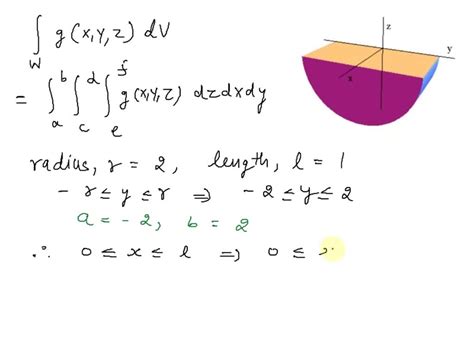 ∫ g(x,y,z) dV
W
z
y
x
= ∫ₐᵇ ∫꜀ᵈ ∫ₑᶠ g(x,y,z) dz dx dy
radius, r = 2, length, l = 1
- r ≤ y ≤ r ⇒ - 2 ≤ y ≤ 2
a = - 2, b = 2
∴ 0 ≤ x ≤ l ⇒ 0 ≤